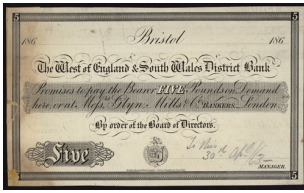 5 5
Bristol
186 186
The West of England & South Wales District Bank
Promises to pay the Bearer FIVE Pounds on Demand
here, or at Messrs Glyn, Mills & Co. BANKERS, London.
By order of the Board of Directors.
Five
30th
MANAGER.
5 5